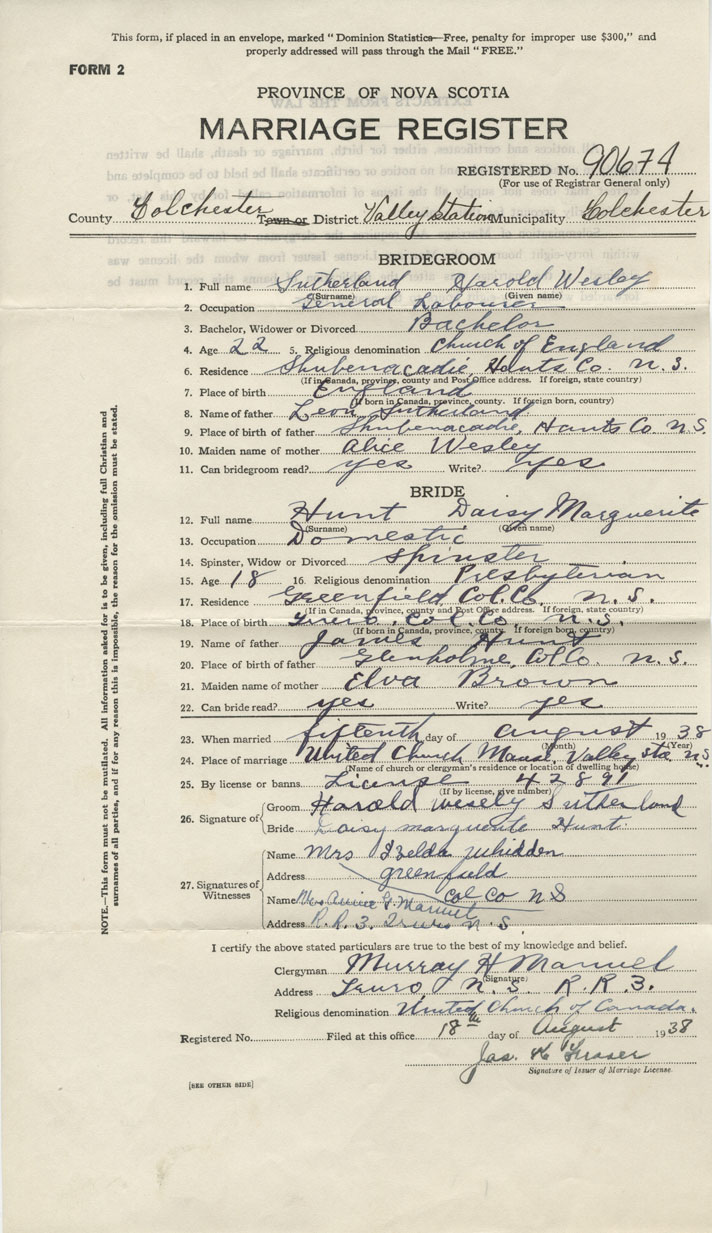 This form, if placed in an envelope, marked "Dominion Statistics—Free, penalty for improper use $300," and
properly addressed will pass through the Mail "FREE."
FORM 2
PROVINCE OF NOVA SCOTIA
MARRIAGE REGISTER
REGISTERED No. 90674
(For use of Registrar General only)
County Colchester Town or District Valley Station Municipality Colchester
BRIDEGROOM
1. Full name Sutherland Harold Wesley
(Surname) (Given name)
2. Occupation General Labourer
3. Bachelor, Widower or Divorced Bachelor
4. Age 22 5. Religious denomination Church of England
6. Residence Shubenacadie, Hants Co. N. S.
(If in Canada, province, county and Post Office address. If foreign, state country)
7. Place of birth England
(If born in Canada, province, county. If foreign born, country)
8. Name of father Leon Sutherland
9. Place of birth of father Shubenacadie, Hants Co. N.S.
10. Maiden name of mother Alice Wesley
11. Can bridegroom read? yes Write? yes
BRIDE
12. Full name Hunt Daisy Marguerite
(Surname) (Given name)
13. Occupation Domestic
14. Spinster, Widow or Divorced Spinster
15. Age 18 16. Religious denomination Presbyterian
17. Residence Greenfield, Col. Co. N. S.
(If in Canada, province, county and Post Office address. If foreign, state country)
18. Place of birth Truro, Col. Co. N. S.
(If born in Canada, province, county. If foreign born, country)
19. Name of father James Hunt
20. Place of birth of father Glenholme, Col Co. N. S.
21. Maiden name of mother Elva Brown
22. Can bride read? yes Write? yes
23. When married fifteenth day of August 1938
(Month) (Year)
24. Place of marriage United Church Manse, Valley Sta. N.S.
(Name of church or clergyman's residence or location of dwelling house)
25. By license or banns License 42891
(If by license, give number)
26. Signature of
Groom Harold Wesely Sutherland
Bride Daisy marguerite Hunt.
27. Signatures of Witnesses
Name Mrs Zelda Whidden
Address greenfield
Col Co N S
Name Mrs Annie G. Manuel
Address R. R. 3. Truro N. S.
I certify the above stated particulars are true to the best of my knowledge and belief.
Clergyman Murray H Manuel
(Signature)
Address Truro, N. S. R. R. 3.
Religious denomination United Church of Canada.
Registered No. Filed at this office 18th day of August 1938
Jas. Fraser
Signature of Issuer of Marriage License.
[SEE OTHER SIDE]
NOTE.—This form must not be mutilated. All information asked for is to be given, including full Christian and
surnames of all parties, and if for any reason this is impossible, the reason for the omission must be stated.